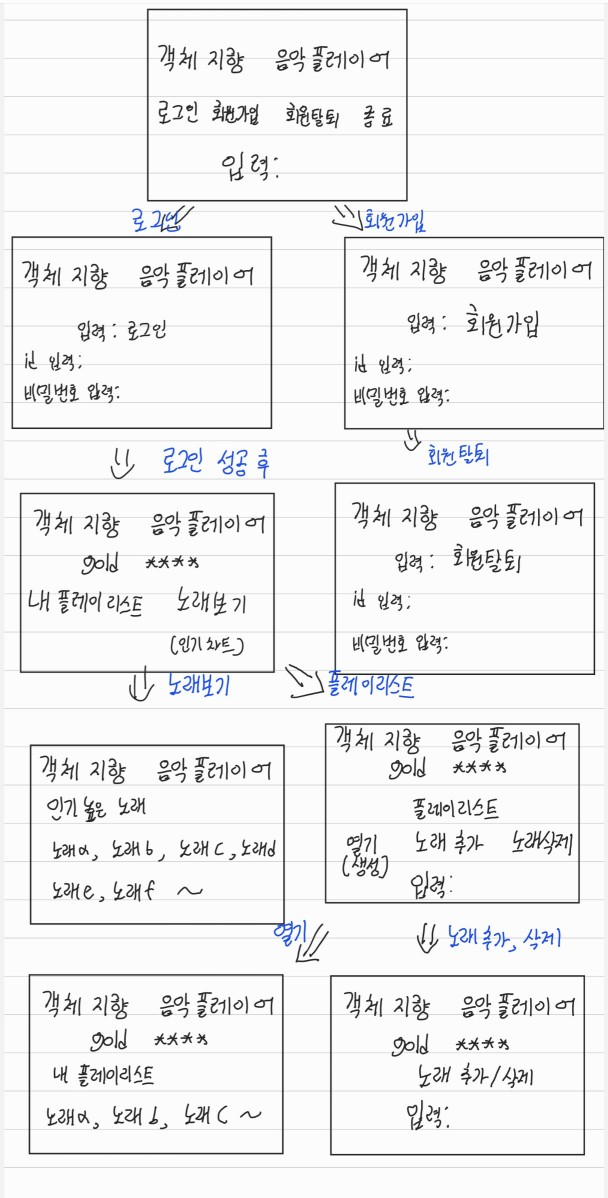 객체 지향 음악플레이어
로그인 회원가입 회원탈퇴 종료
입력:
로그인
회원가입
객체 지향 음악플레이어
입력: 로그인
id 입력:
비밀번호 입력:
객체 지향 음악플레이어
입력: 회원가입
id 입력:
비밀번호 입력:
로그인 성공 후
회원탈퇴
객체 지향 음악플레이어
gold ****
내 플레이리스트 노래보기
(인기차트)
객체 지향 음악플레이어
입력: 회원탈퇴
id 입력:
비밀번호 입력:
노래보기
플레이리스트
객체 지향 음악플레이어
인기 높은 노래
노래a, 노래b, 노래c, 노래d
노래e, 노래f ~
객체 지향 음악플레이어
gold ****
플레이리스트
열기 노래 추가 노래삭제
(생성)
입력:
열기
노래 추가, 삭제
객체 지향 음악플레이어
gold ****
내 플레이리스트
노래a, 노래b, 노래c ~
객체 지향 음악플레이어
gold ****
노래 추가/삭제
입력: